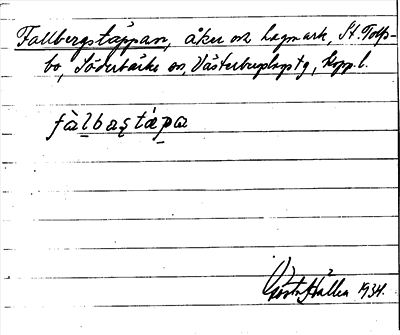 Fallbergstäppan, åker och hagmark, St. Tolfs-
bo, Söderbärke sn, Västerbergslags tg, Kopp. l.
fàlbasṭápa
Gösta Hållen 1934.